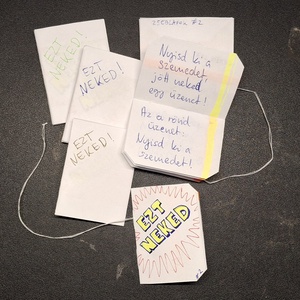 EZT
NEKED!
EZT
NEKED!
EZT
NEKED!
#2
Nyisd ki a
szemedet,
jött neked
egy üzenet!
Az a rövid
üzenet:
Nyisd ki a
szemedet!
EZT
NEKED